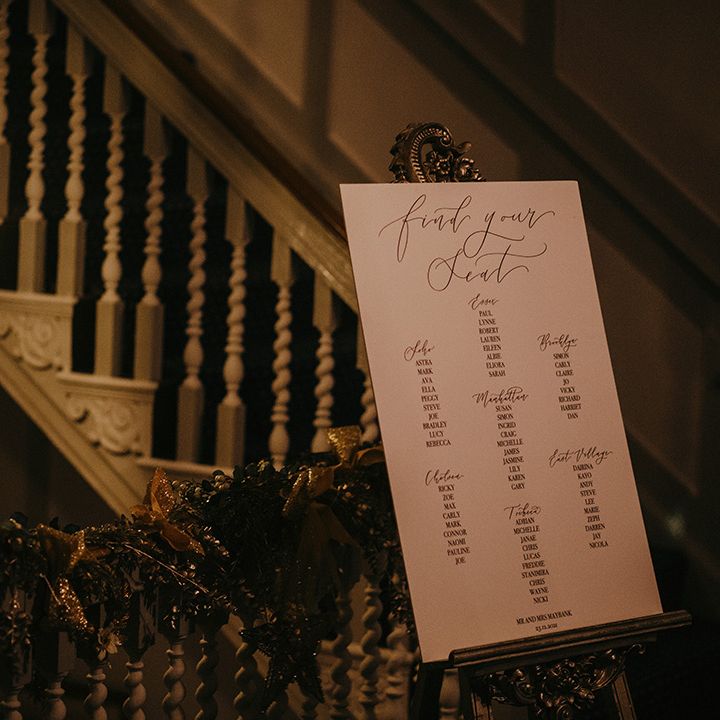 find your
Seat
Essex
PAUL
LYNNE
ROBERT
LAUREN
EILEEN
ALBIE
ELIORA
SARAH
Soho
ASTRA
MARK
AVA
ELLA
PEGGY
STEVE
JOE
BRADLEY
LUCY
REBECCA
Brooklyn
SIMON
CARLY
CLAIRE
JO
VICKY
RICHARD
HARRIET
DAN
Manhattan
SUSAN
SIMON
INGRID
CRAIG
MICHELLE
JAMES
JASMINE
LILY
KAREN
GARY
Chelsea
RICKY
ZOE
MAX
CARLY
MARK
CONNOR
NAOMI
PAULINE
JOE
East Village
DAIRINA
KAYO
ANDY
STEVE
LEE
MARIE
ZEPH
DARREN
JAY
NICOLA
Tribeca
ADRIAN
MICHELLE
JANAE
CHRIS
LUCAS
FREDDIE
STANIMIRA
CHRIS
WAYNE
NICKI
MR AND MRS MAYBANK